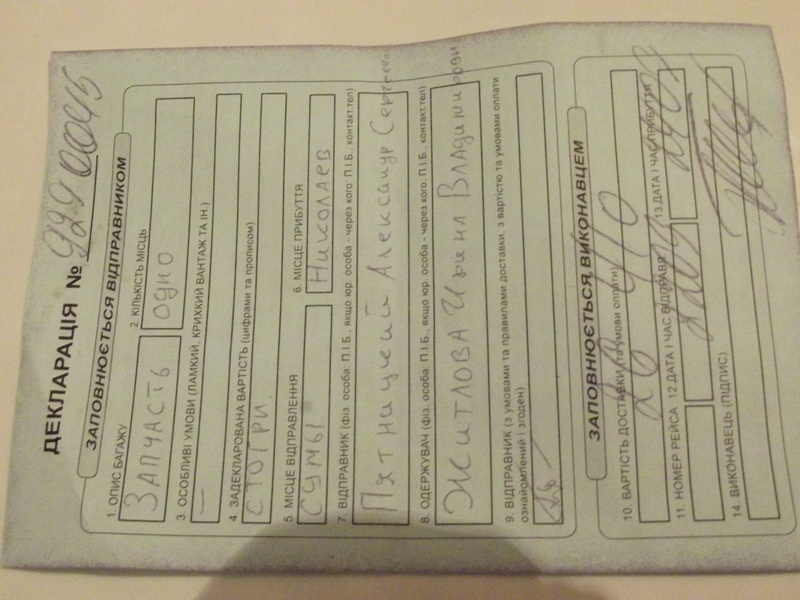 ДЕКЛАРАЦІЯ № 929 0045
ЗАПОВНЮЄТЬСЯ ВІДПРАВНИКОМ
1. ОПИС БАГАЖУ
ЗАПЧАСТЬ
2. КІЛЬКІСТЬ МІСЦЬ
одно
3. ОСОБЛИВІ УМОВИ (ЛАМКИЙ, КРИХКИЙ ВАНТАЖ ТА ІН.)
—
4. ЗАДЕКЛАРОВАНА ВАРТІСТЬ (цифрами та прописом)
СТО ГРН.
5. МІСЦЕ ВІДПРАВЛЕННЯ
СУМЫ
6. МІСЦЕ ПРИБУТТЯ
Николаев
7. ВІДПРАВНИК (фіз. особа: П.І.Б., якщо юр. особа - через кого: П.І.Б., контакт.тел)
Александр
8. ОДЕРЖУВАЧ (фіз. особа: П.І.Б., якщо юр. особа - через кого: П.І.Б., контакт.тел)
Житлова
9. ВІДПРАВНИК (з умовами та правилами доставки, з вартістю та умовами оплати
ознайомлений і згоден)
ЗАПОВНЮЄТЬСЯ ВИКОНАВЦЕМ
10. ВАРТІСТЬ ДОСТАВКИ (та умови оплати)
11. НОМЕР РЕЙСА
12 ДАТА І ЧАС ВІДПРАВЛ
13 ДАТА І ЧАС ПРИБУТТЯ
14 ВИКОНАВЕЦЬ (ПІДПИС)